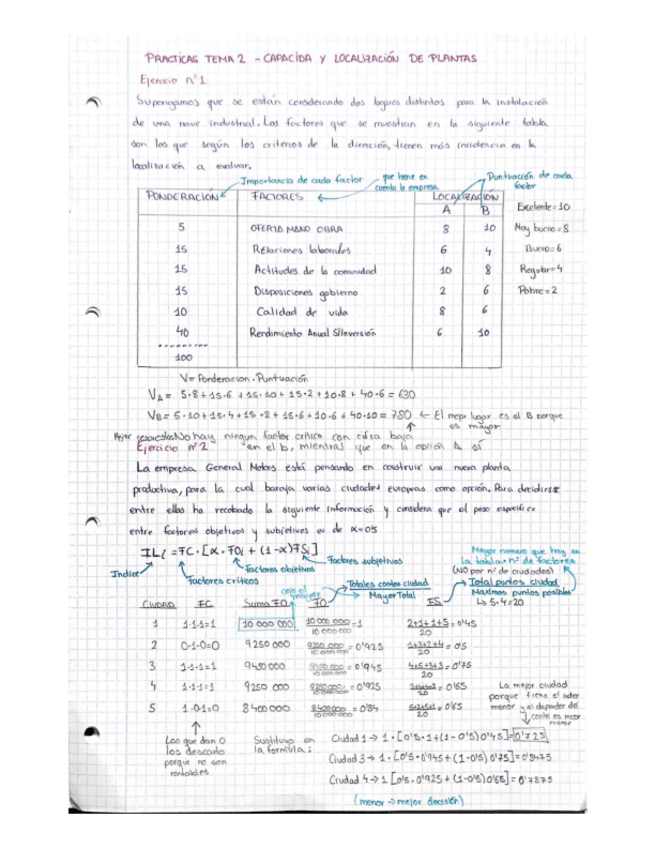 PRACTICAS TEMA 2 - CAPACIDA Y LOCALIZACIÓN DE PLANTAS
Ejercicio nº1
Supongamos que se están considerando dos lugares distintos para la instalación
de una nave industrial. Los factores que se muestran en la siguiente tabla
son los que según los criterios de la dirección, tienen más incidencia en la
localización a evaluar.
Importancia de cada factor
que tiene en
cuenta la empresa
Puntuación de cada
factor
PONDERACIÓN FACTORES LOCALIZACIÓN
A B
Excelente=10
5 OFERTA MANO OBRA 8 10 Muy bueno=8
15 Relaciones laborales 6 4 Bueno=6
15 Actitudes de la comunidad 10 8 Regular=4
15 Disposiciones gobierno 2 6 Pobre=2
10 Calidad de vida 8 6
40 Rendimiento Anual S/Inversión 6 10
100
V= Ponderacion · Puntuación
VA= 5·8+15·6+15·10+15·2+10·8+40·6=630
VB= 5·10+15·4+15·8+15·6+10·6+40·10=780 ← El mejor lugar es el B porque
es mayor
No hay ningun factor critico con cifra baja
en el b, mientras que en la opción A sí
Ejercicio nº2
La empresa General Motors está pensando en construir una nueva planta
productiva, para la cual baraja varias ciudades europeas como opción. Para decidirse
entre ellas ha recabado la siguiente información y considera que el peso específico
entre factores objetivos y subjetivos es de α=0'5
ILi =FC·[α·FOi+(1-α)FSi]
Indice
Factores criticos
Factores objetivos
Factores subjetivos
Mayor numero que hay en
la tabla · nº de factores
(NO por nº de ciudades)
Total puntos ciudad
Maximos puntos posibles
↳ 5·4=20
Totales costes ciudad
Mayor Total
CIUDAD FC Suma FO FO FS
1 1·1·1=1 10 000 000 10 000 000/10 000 000=1 2+1+1+5/20=0'45
2 0·1·0=0 9250 000 9250 000/10 000 000=0'925 1+3+2+4/20=0'5
3 1·1·1=1 9450 000 9450 000/10 000 000=0'945 4+5+3+3/20=0'75
4 1·1·1=1 9250 000 9250 000/10 000 000=0'925 /20=0'65
5 1·0·1=0 8400 000 8400 000/10 000 000=0'84 /20=0'65
La mejor ciudad
porque tiene el index
menor y al depender del
coste es mejor
menor
Los que dan 0
los descarto
porque no son
rentables
Sustituyo en
la formula:
Ciudad 1→ 1·[0'5·1+(1-0'5)0'45]=0'725
Ciudad 3→ 1·[0'5·0'945+(1-0'5)0'75]=0'8475
Ciudad 4→ 1[0'5·0'925+(1-0'5)0'65]=0'7875
(menor → mejor decisión)